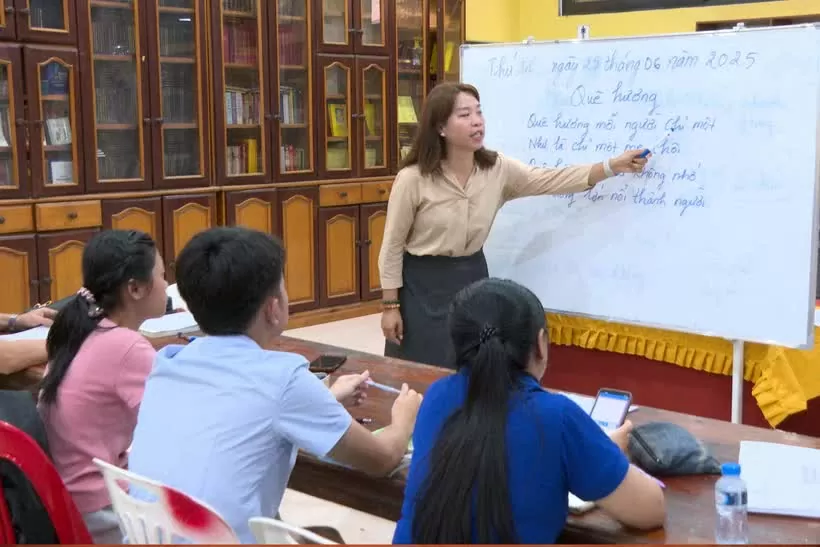 Thứ tư ngày 25 tháng 06 năm 2025
Quê hương
Quê hương mỗi người chỉ một
Như là chỉ một
Quê không nhớ
lớn nổi thành người